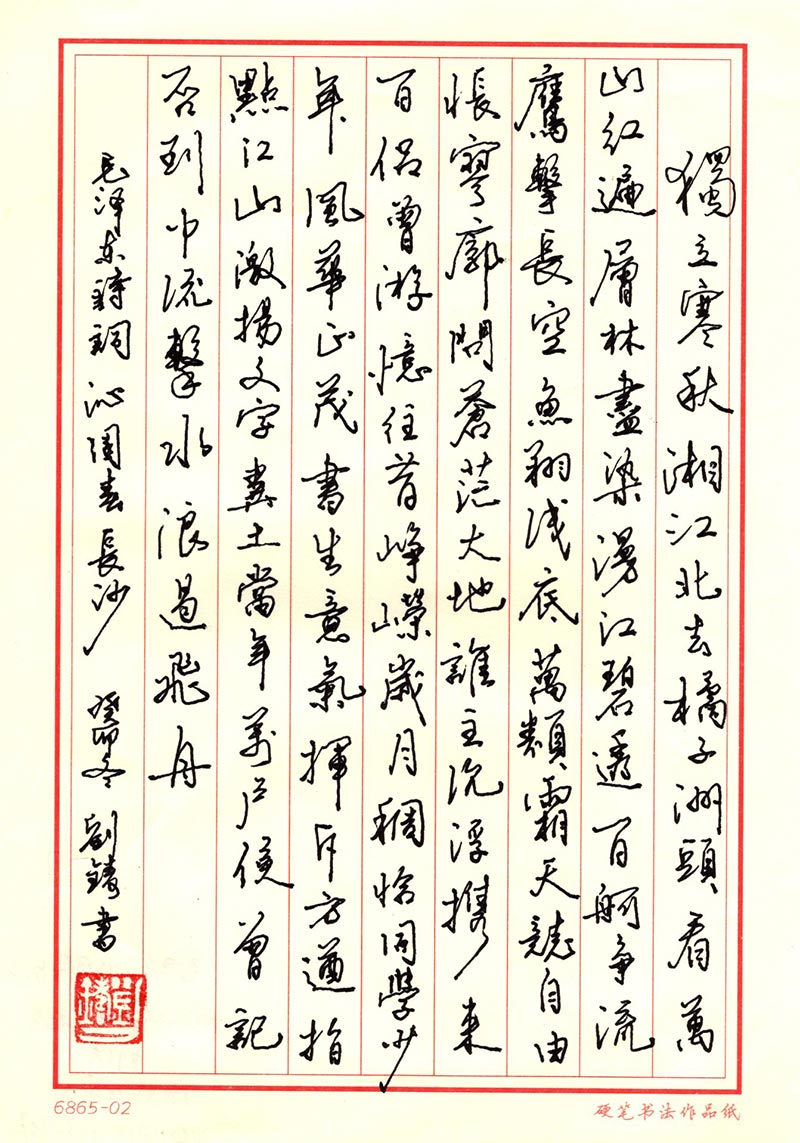 獨立寒秋湘江北去橘子洲頭看萬
山紅遍層林盡染漫江碧透百舸争流
鷹擊長空魚翔浅底萬類霜天競自由
悵寥廓問蒼茫大地誰主沉浮携来
百侣曾游憶往昔峥嶸歲月稠恰同學少
年風華正茂書生意氣揮斥方遒指
點江山激揚文字糞土當年萬户侯曾記
否到中流擊水浪遏飛舟
毛泽东詩詞沁園春長沙 癸卯冬 劉鑄書
6865-02
硬笔书法作品纸